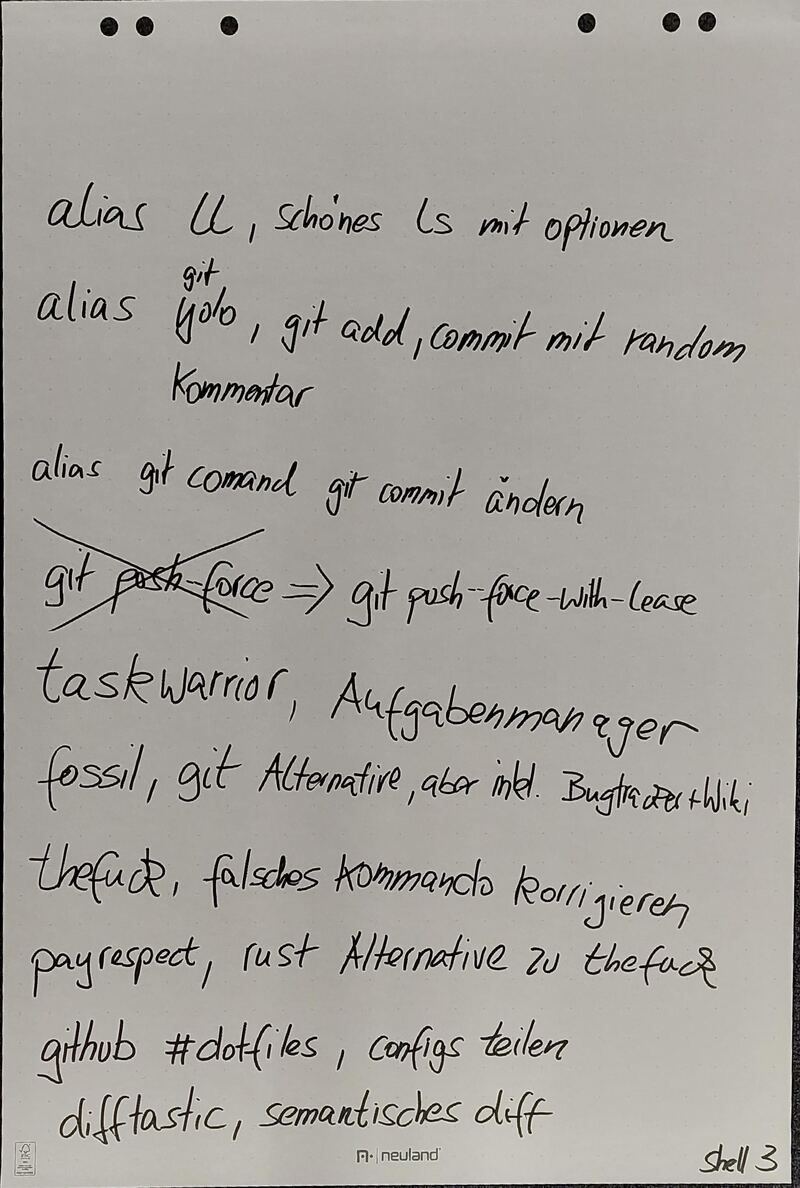 alias ll, schönes ls mit optionen
git
alias yolo, git add, commit mit random
Kommentar
alias git comand git commit ändern
git push-force => git push--force-with-lease
taskwarrior, Aufgabenmanager
fossil, git Alternative, aber inkl. Bugtracker + Wiki
thefuck, falsches Kommando korrigieren
payrespect, rust Alternative zu thefuck
github #dotfiles, configs teilen
difftastic, semantisches diff
n· | neuland
Shell 3